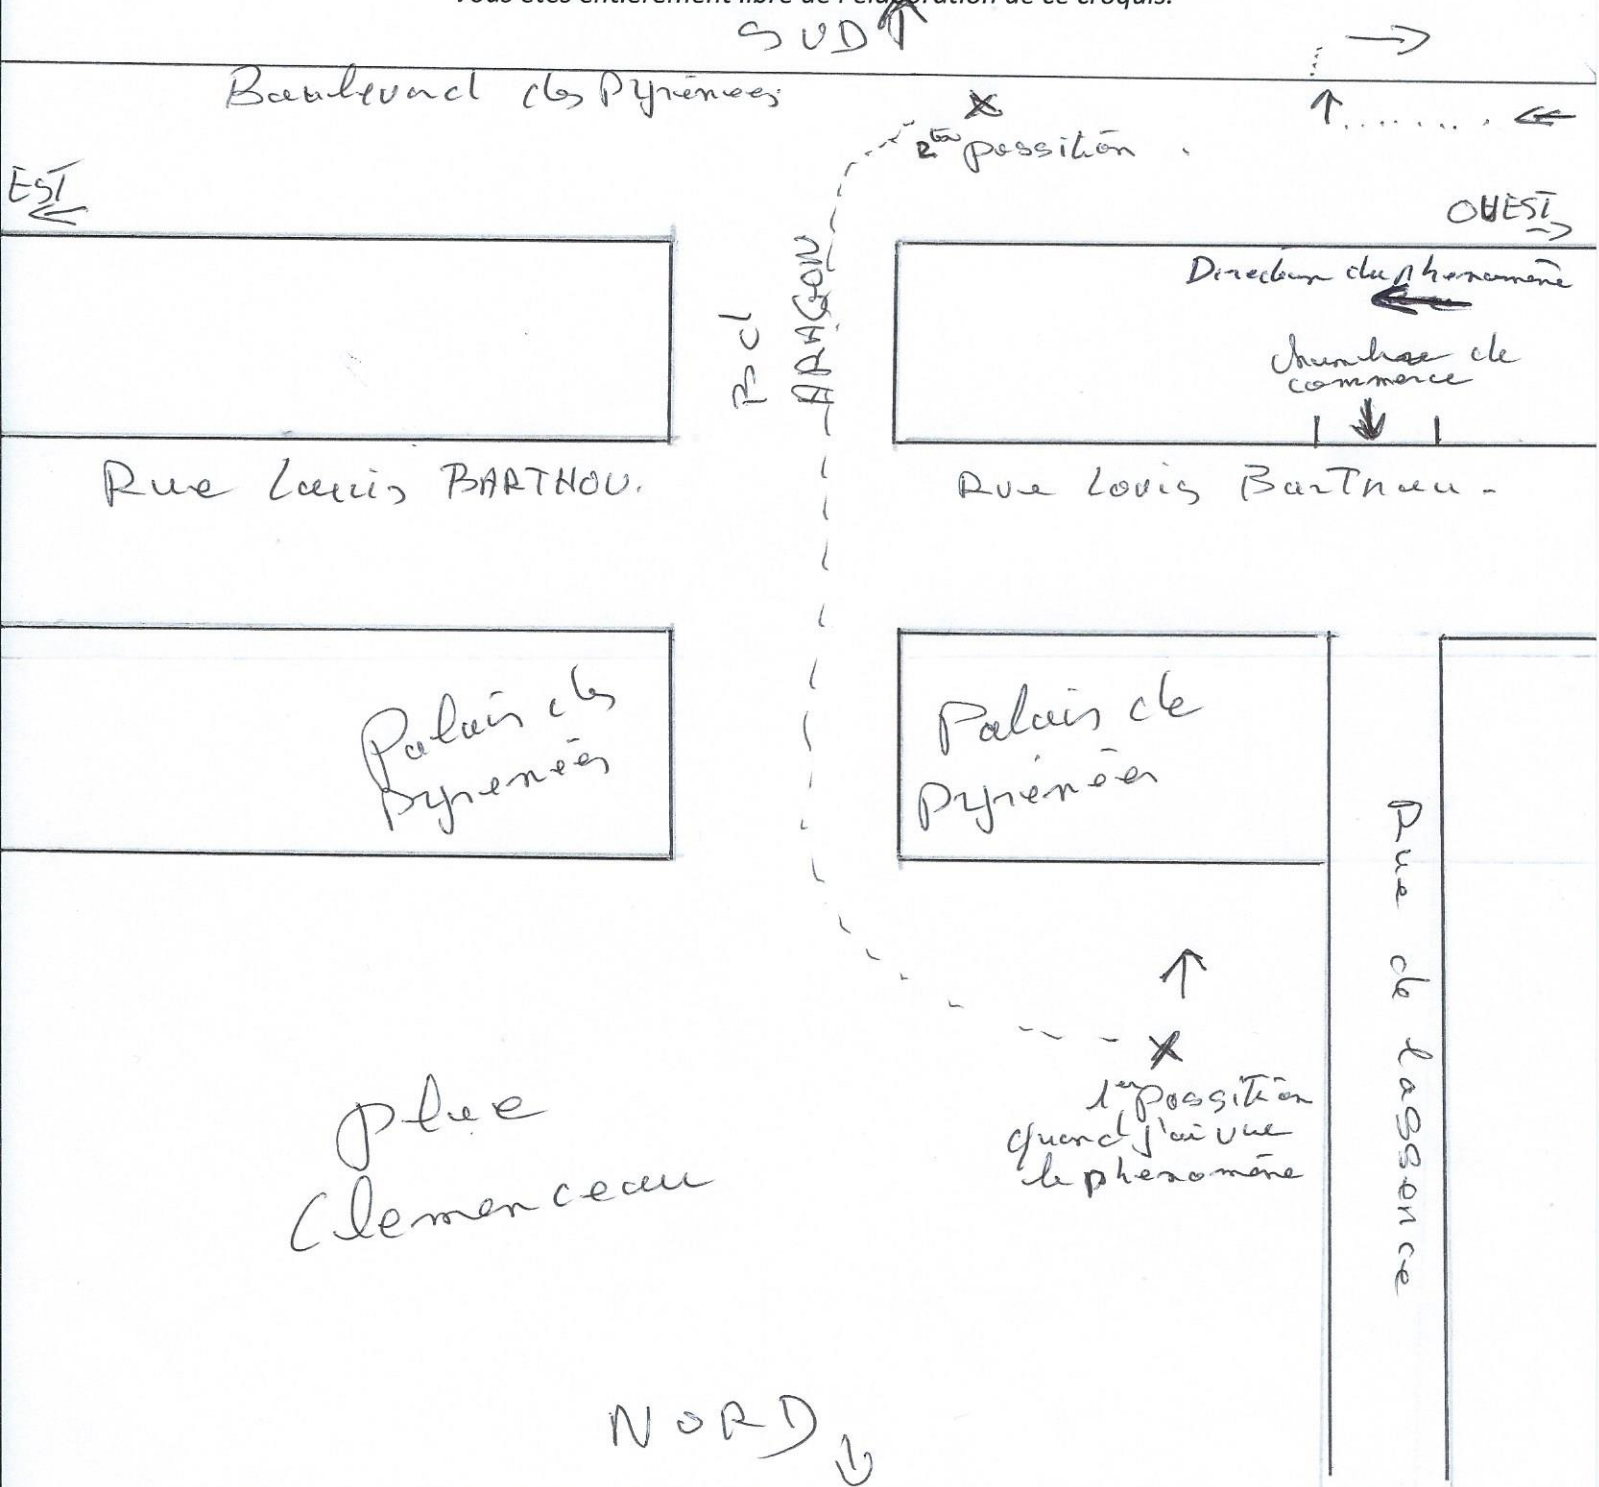 Vous êtes entièrement libre de l'élaboration de ce croquis.
SUD
Boulevard des Pyrénées
2em possition
EST
OUEST
Direction du phenomène
Bd
ARAGON
chambre de
commerce
Rue Louis BARTHOU.
Rue Louis Barthou.
Palais des
Pyrenées
Palais de
Pyrénées
Rue de lassence
1er possition
quand j'ai vue
le phenomène
place
Clemenceau
NORD